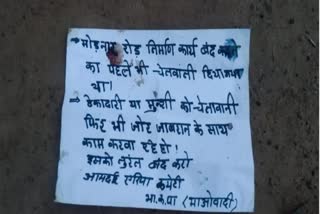 → मोड़नार रोड़ निर्माण कार्य बंद करने
का पहले भी चेतवानी दिया गया
था।
→ ठेकादारी या मुन्शी को चेतावानी
फिर भी जोर जबरान के साथ
काम करवा रहे हो!
इसको तुरंत बंद करो
आमदई एरिया कमेटी
भा.क.पा (माओवादी)